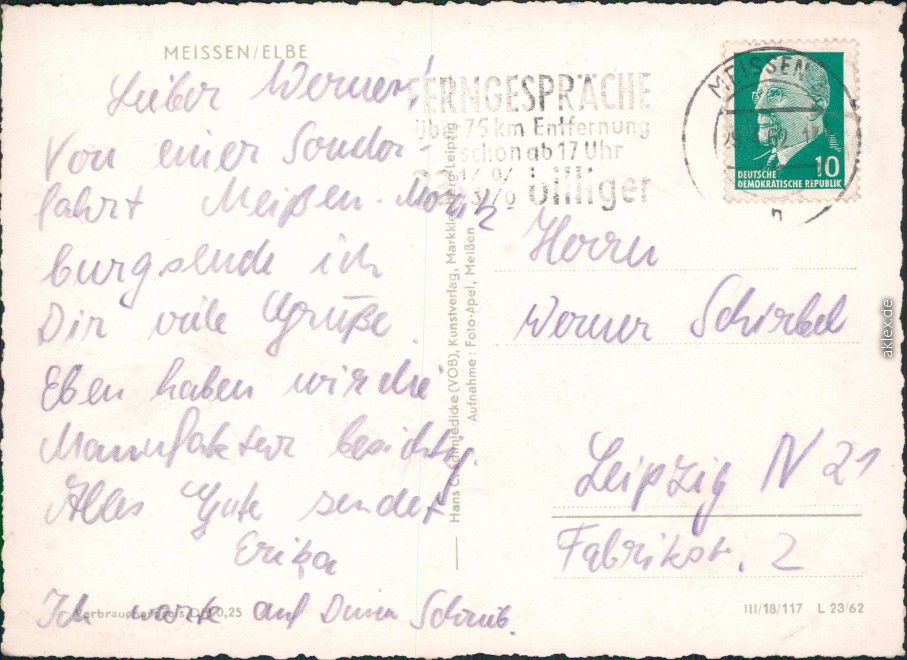 MEISSEN/ELBE
Lieber Werner!
Von einer Sonder-
fahrt Meißen-Moritz
burg sende ich
Dir viele Grüße.
Eben haben wir die
Manufaktur besichtigt.
Alles Gute sendet
Erika
Ich warte auf Deinen
Verbraucherpreis DM 0,25
FERNGESPRÄCHE
über 75 km Entfernung
schon ab 17 Uhr
billiger
MEISSEN
10
DEUTSCHE
DEMOKRATISCHE REPUBLIK
Herrn
Werner Schirbel
Leipzig N 21
Fabrikstr. 2
III/18/117 L 23/62
(VOB), Kunstverlag, Markkleeberg-Leipzig
Aufnahme: Foto-Apel, Meißen
aklex.de